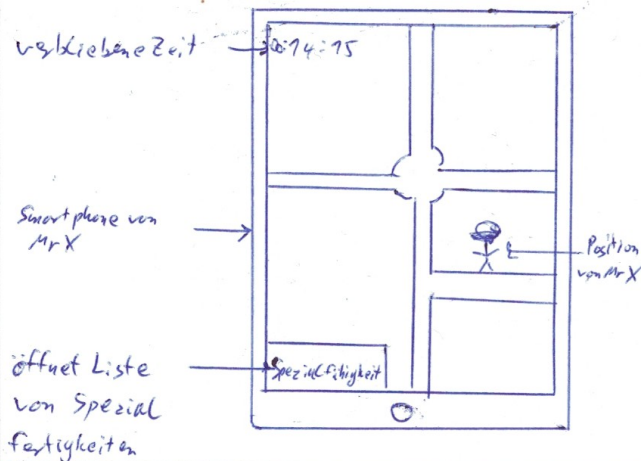 verbliebene Zeit
00:14:15
Smartphone von
Mr X
Position
von Mr X
öffnet Liste
von Spezial
fertigkeiten
Spezialfähigkeit